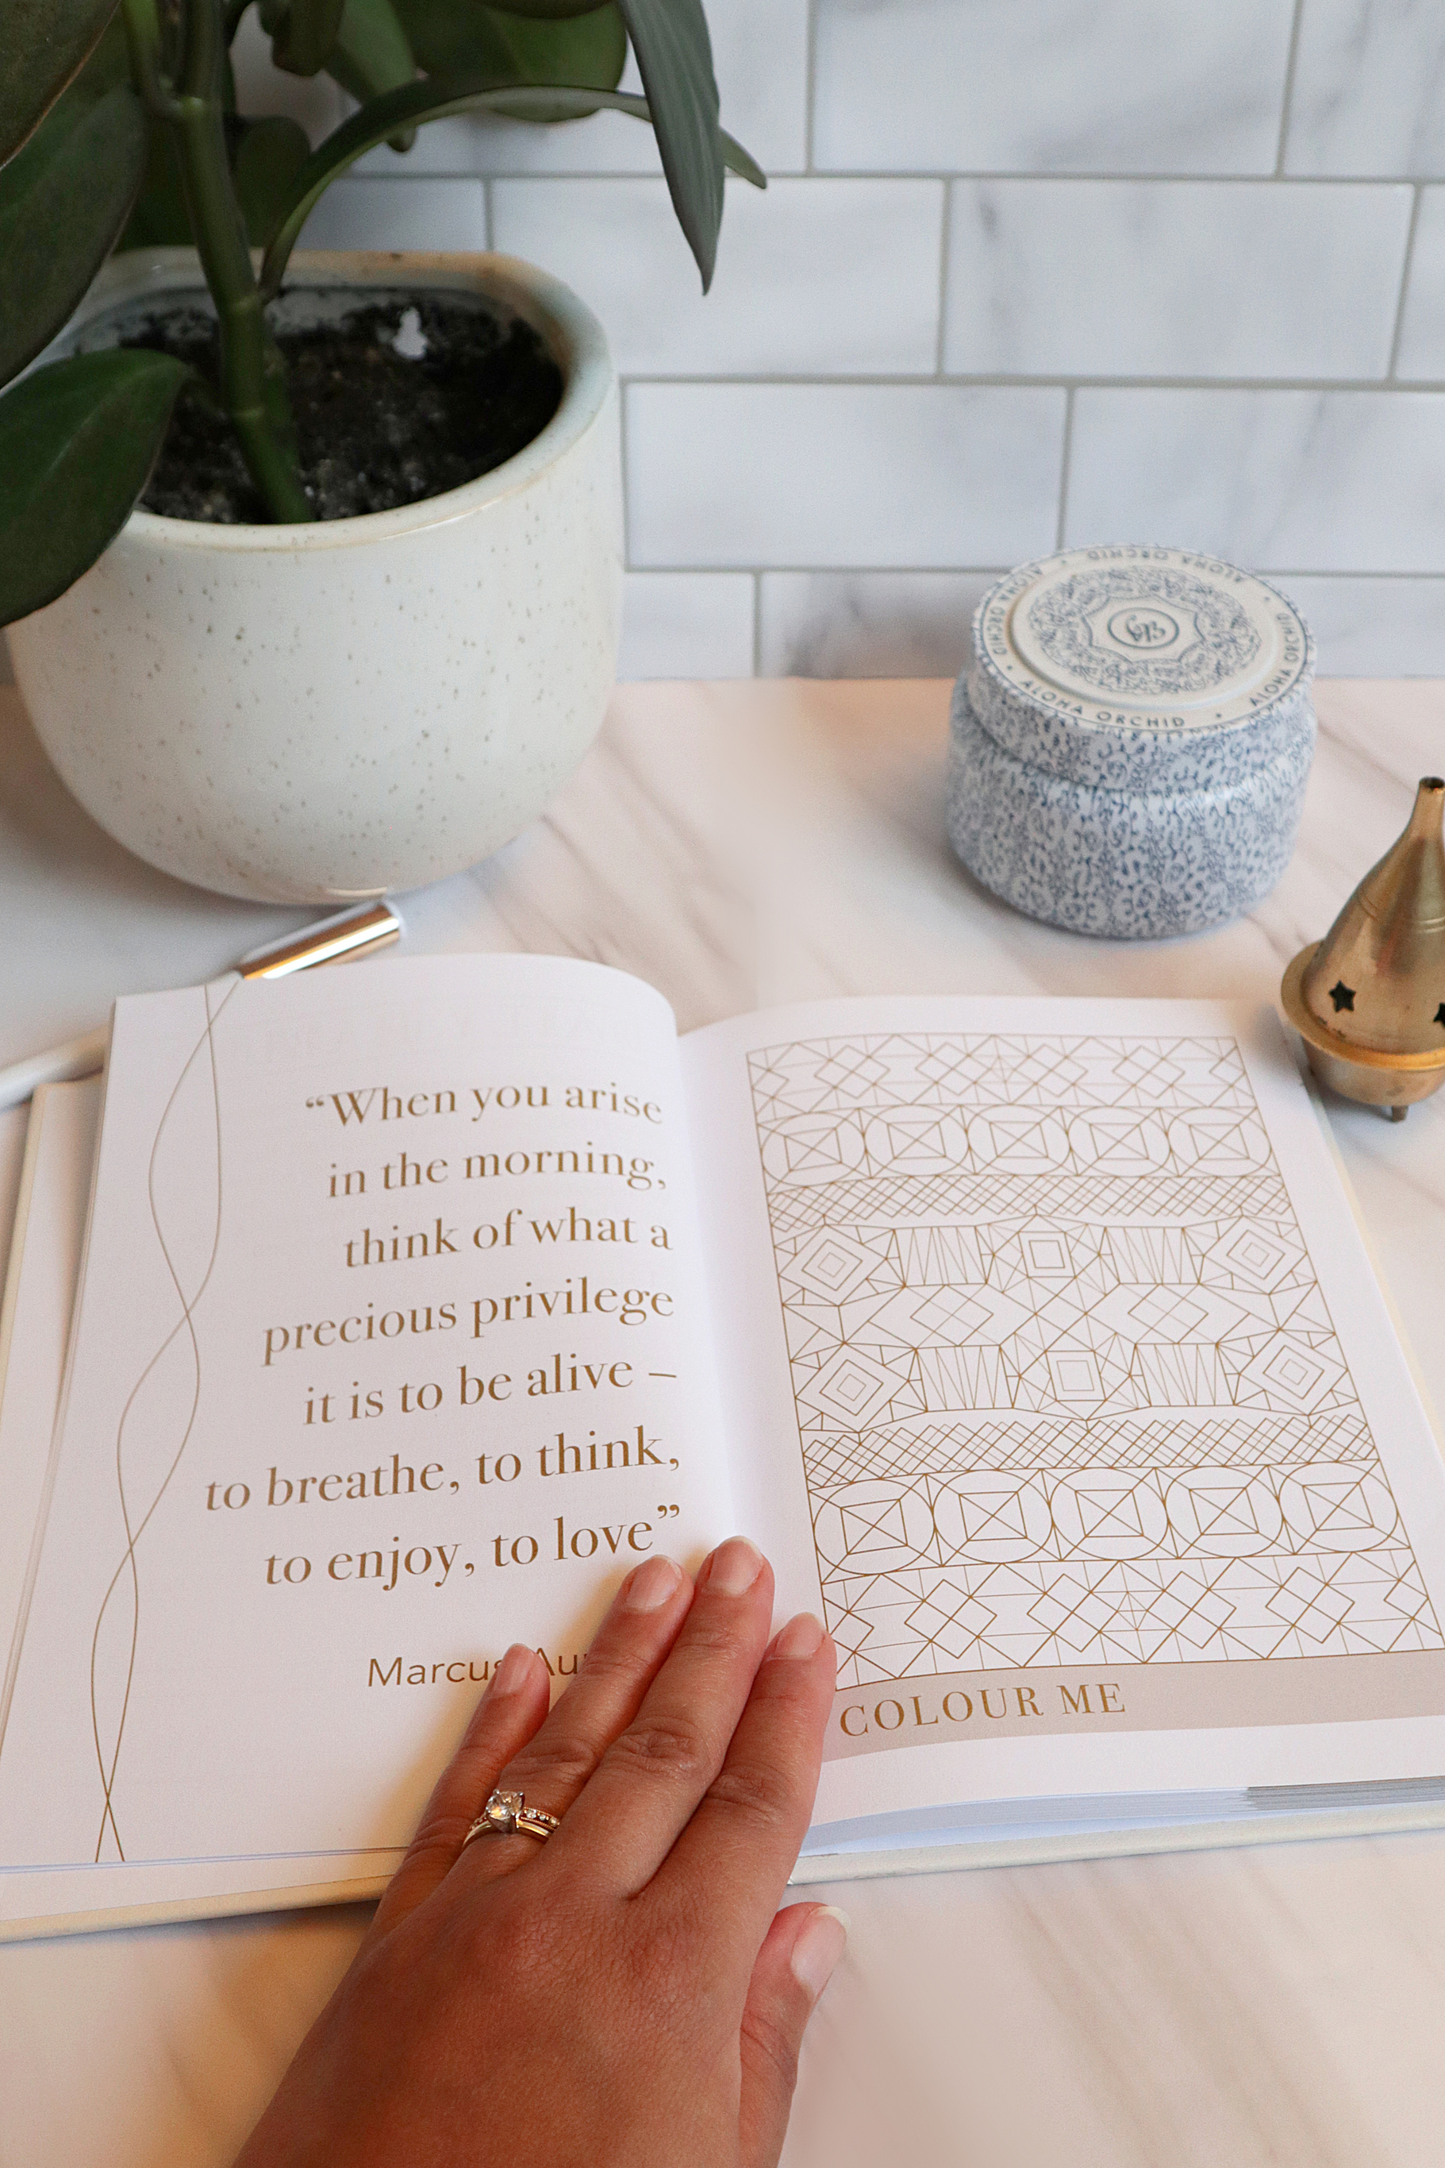 ALOHA ORCHID • ALOHA ORCHID • ALOHA ORCHID • ALOHA ORCHID •
“When you arise
in the morning,
think of what a
precious privilege
it is to be alive –
to breathe, to think,
to enjoy, to love”
Marcus
COLOUR ME